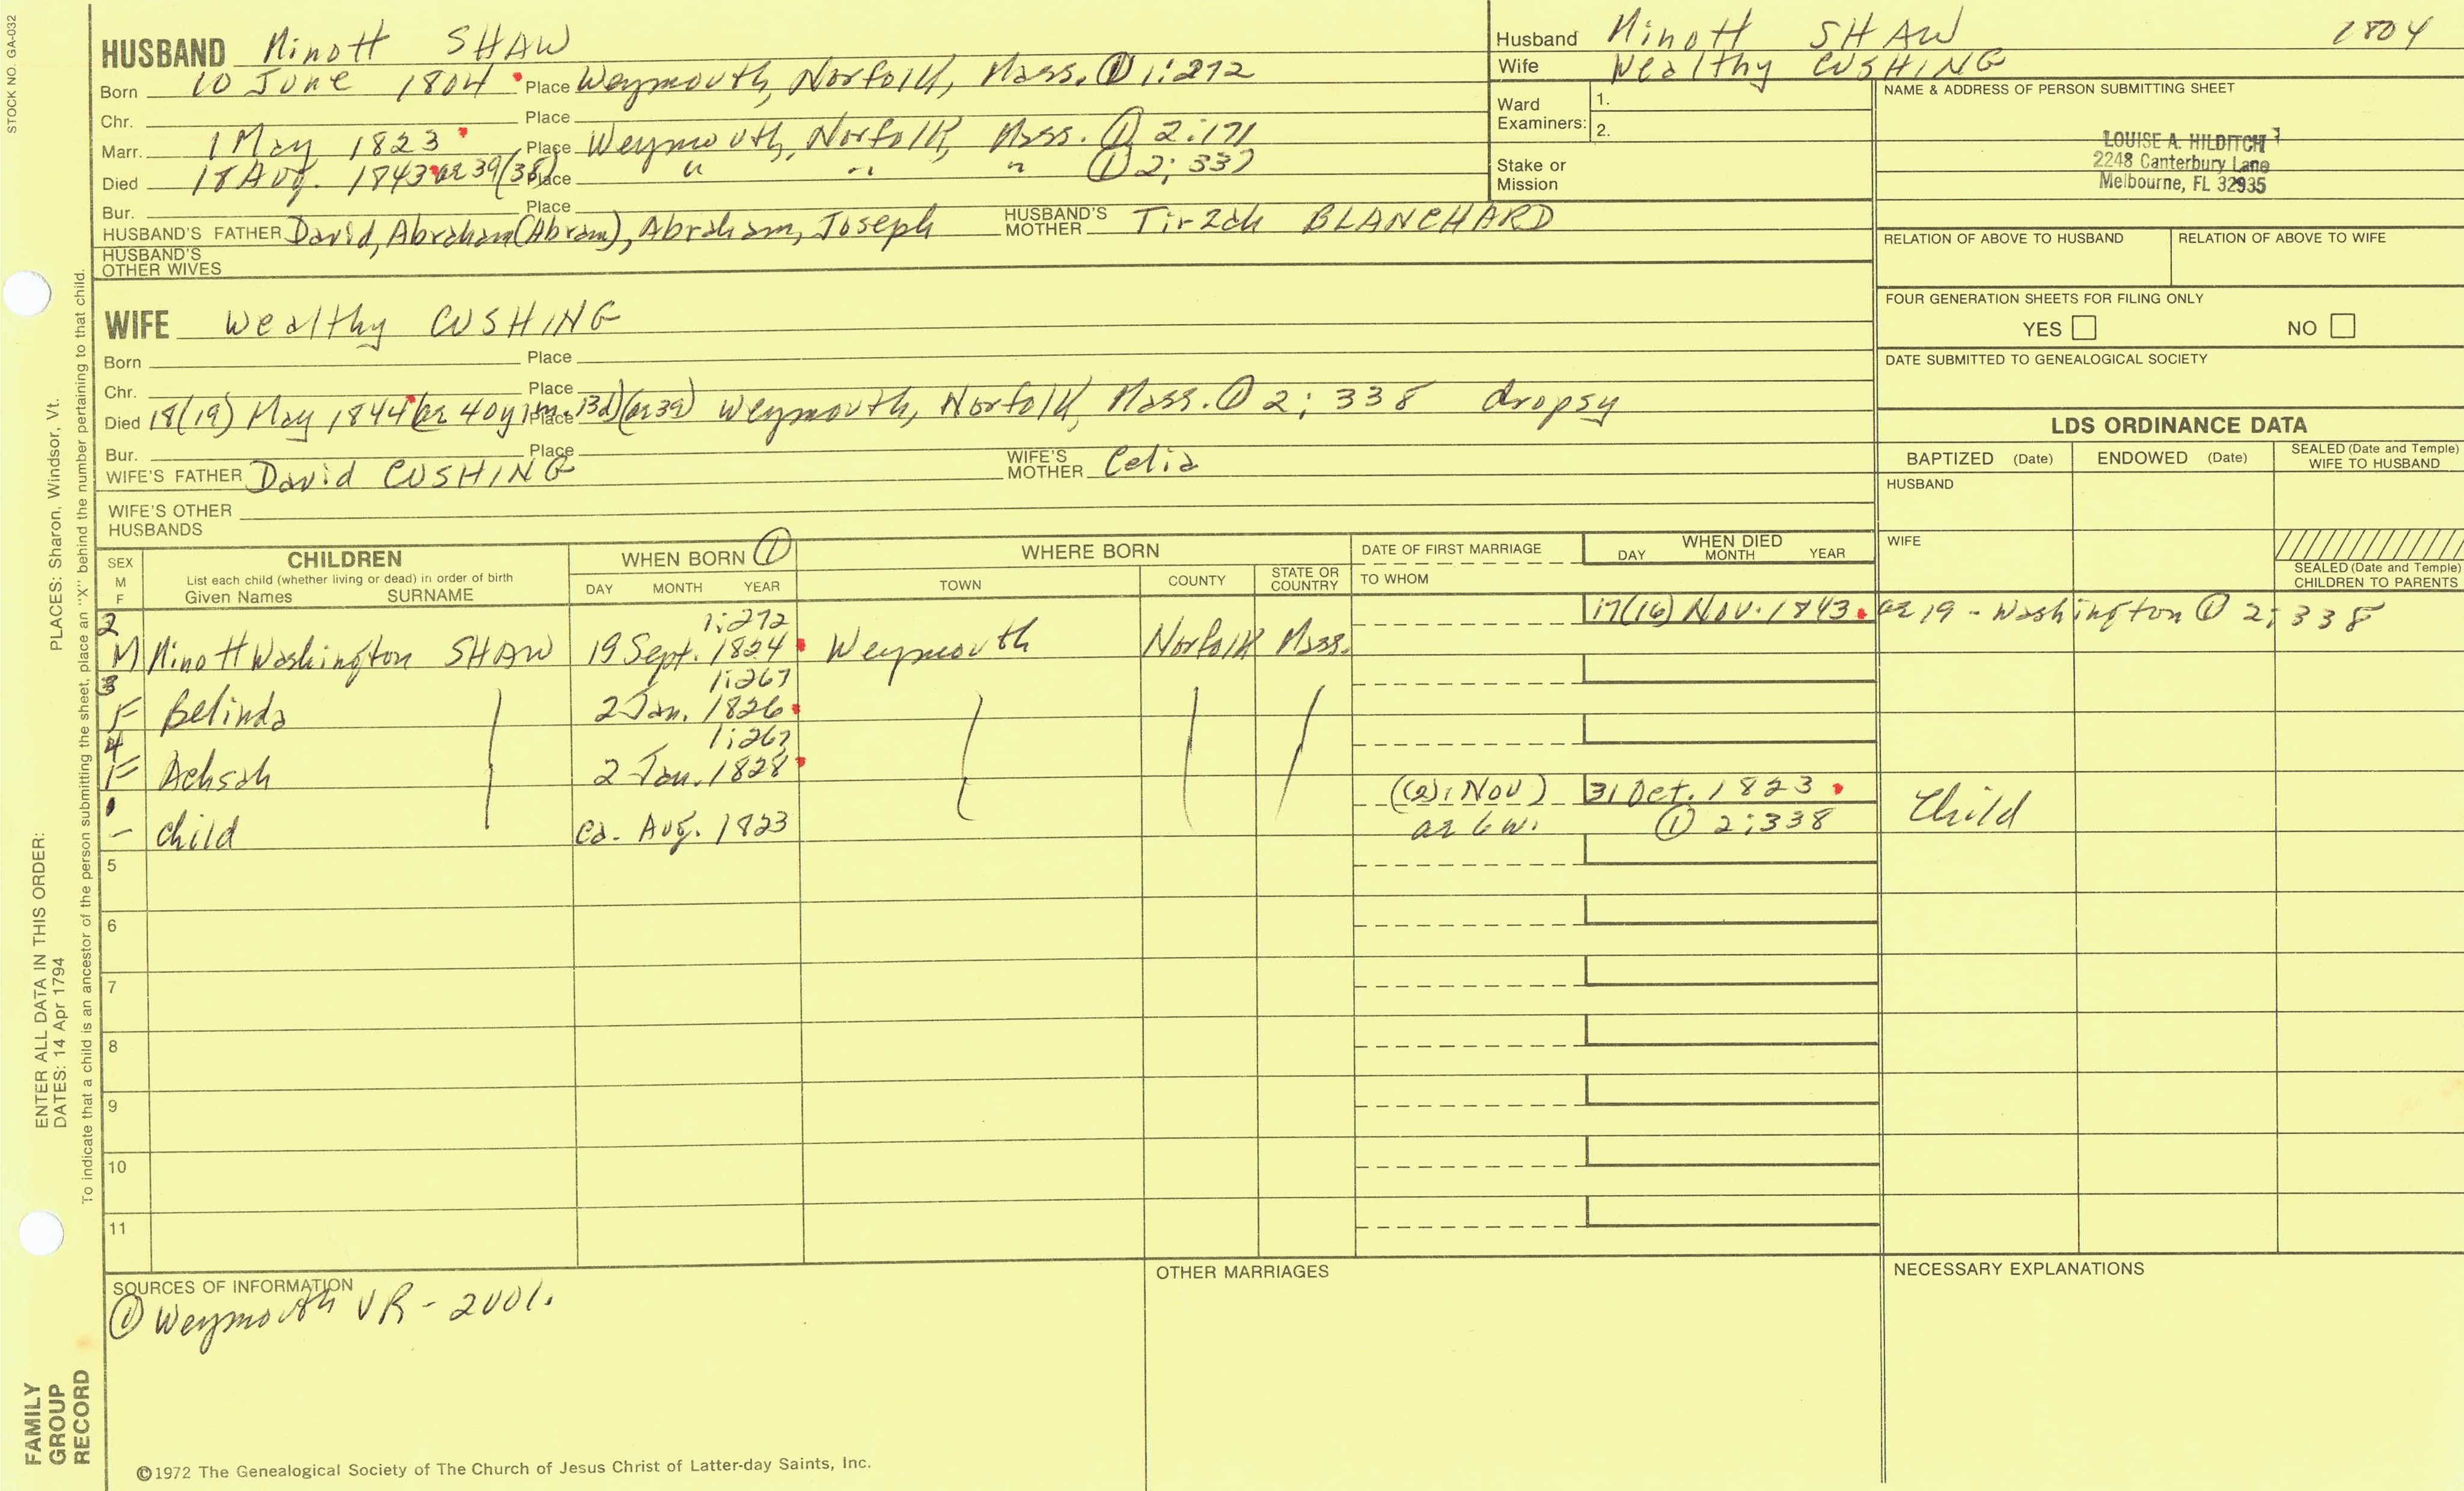 STOCK NO. GA-032
HUSBAND Minott SHAW
Born 10 June 1804 Place Weymouth, Norfolk, Mass. ① 1:272
Chr. Place
Marr. 1 May 1823 Place Weymouth, Norfolk, Mass. ① 2:171
Died 18 Aug. 1843 ae 39(38) Place " " " ① 2:337
Bur. Place
HUSBAND'S FATHER David, Abraham (Abram), Abraham, Joseph HUSBAND'S MOTHER Tirzah BLANCHARD
HUSBAND'S OTHER WIVES
WIFE Wealthy CUSHING
Born Place
Chr. Place
Died 18(19) May 1844 (ae 40y 1m. 13d) (ae 39) Place Weymouth, Norfolk, Mass. ① 2:338 dropsy
Bur. Place
WIFE'S FATHER David CUSHING WIFE'S MOTHER Celia
WIFE'S OTHER HUSBANDS
Husband Minott SHAW 1804
Wife Wealthy CUSHING
Ward Examiners: 1.
2.
Stake or Mission
NAME & ADDRESS OF PERSON SUBMITTING SHEET
LOUISE A. HILDITCH
2248 Canterbury Lane
Melbourne, FL 32935
RELATION OF ABOVE TO HUSBAND RELATION OF ABOVE TO WIFE
FOUR GENERATION SHEETS FOR FILING ONLY
YES NO
DATE SUBMITTED TO GENEALOGICAL SOCIETY
LDS ORDINANCE DATA
BAPTIZED (Date) ENDOWED (Date) SEALED (Date and Temple) WIFE TO HUSBAND
HUSBAND
WIFE
SEALED (Date and Temple) CHILDREN TO PARENTS
SEX M F CHILDREN WHEN BORN ① WHERE BORN DATE OF FIRST MARRIAGE WHEN DIED
List each child (whether living or dead) in order of birth
Given Names SURNAME DAY MONTH YEAR TOWN COUNTY STATE OR COUNTRY TO WHOM DAY MONTH YEAR
2 1:272 17(16) Nov. 1843 ae 19 - Washington ① 2:338
M Minott Washington SHAW 19 Sept. 1824 Weymouth Norfolk Mass.
3 1:267
F Belinda 2 Jan. 1826
4 1:267
F Achsah 2 Jan. 1828
1 ((2): Nov) 31 Oct. 1823 Child
- child ca. Aug. 1823 ae 6 w. ① 2:338
5
6
7
8
9
10
11
SOURCES OF INFORMATION
① Weymouth VR - 2001.
OTHER MARRIAGES
NECESSARY EXPLANATIONS
©1972 The Genealogical Society of The Church of Jesus Christ of Latter-day Saints, Inc.
FAMILY
GROUP
RECORD
ENTER ALL DATA IN THIS ORDER:
DATES: 14 Apr 1794
PLACES: Sharon, Windsor, Vt.
To indicate that a child is an ancestor of the person submitting the sheet, place an "X" behind the number pertaining to that child.